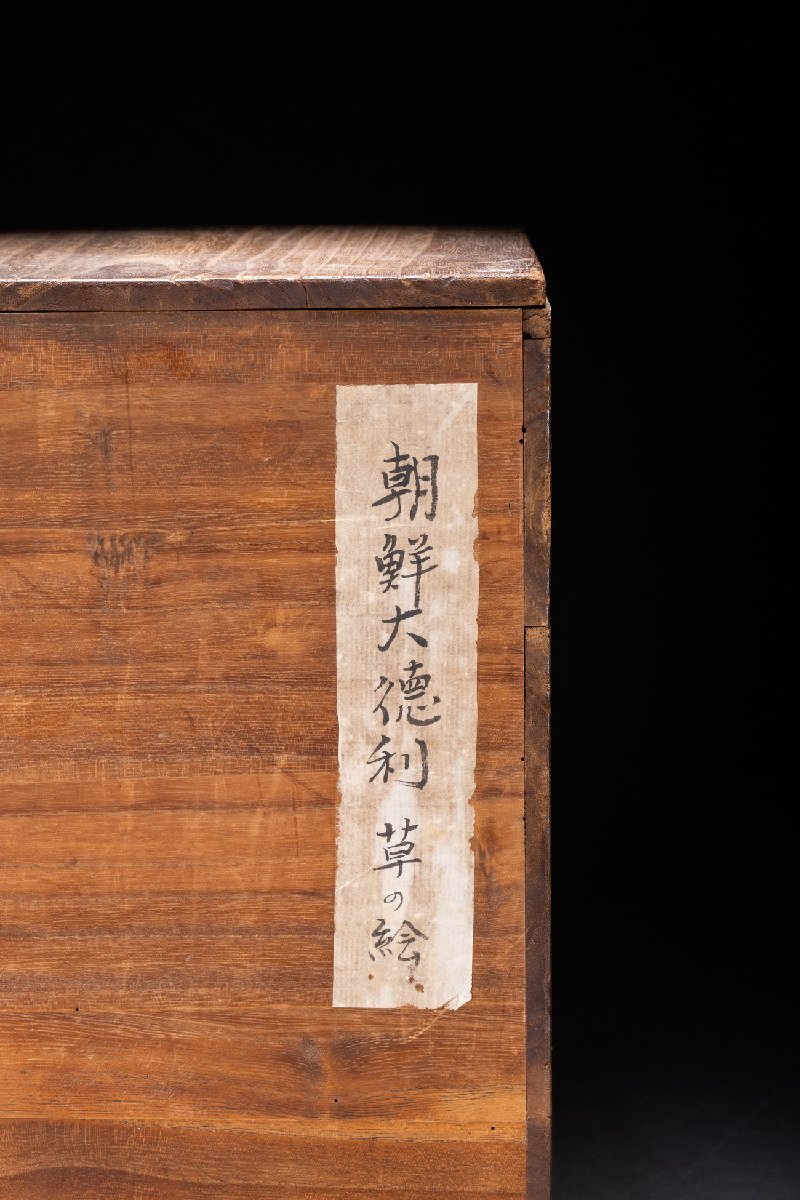 朝鮮大徳利 草の絵